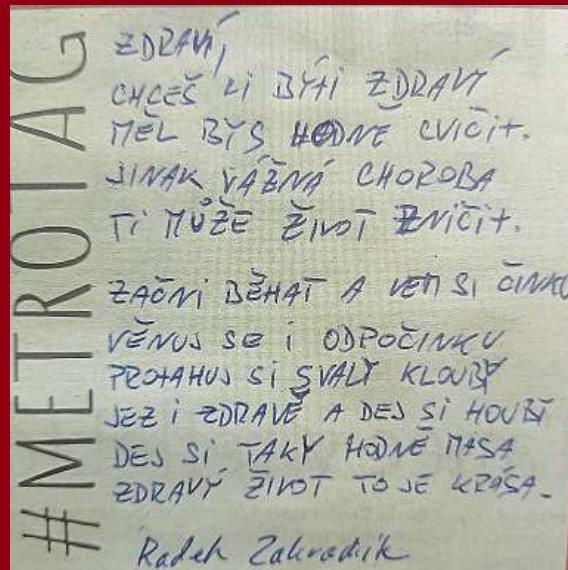 #METROTAG
ZDRAVÍ,
CHCEŠ LI BÝTI ZDRAVÝ
MĚL BYS HODNĚ CVIČIT.
JINAK VÁŽNÁ CHOROBA
TI MŮŽE ŽIVOT ZNIČIT.
ZAČNI BĚHAT A VEM SI ČINKU
VĚNUJ SE I ODPOČINKU
PROTAHUJ SI SVALY KLOUBY
JEZ I ZDRAVĚ A DEJ SI HOUBY
DEJ SI TAKY HODNĚ MASA
ZDRAVÝ ŽIVOT TO JE KRÁSA.
Radek Zahradník